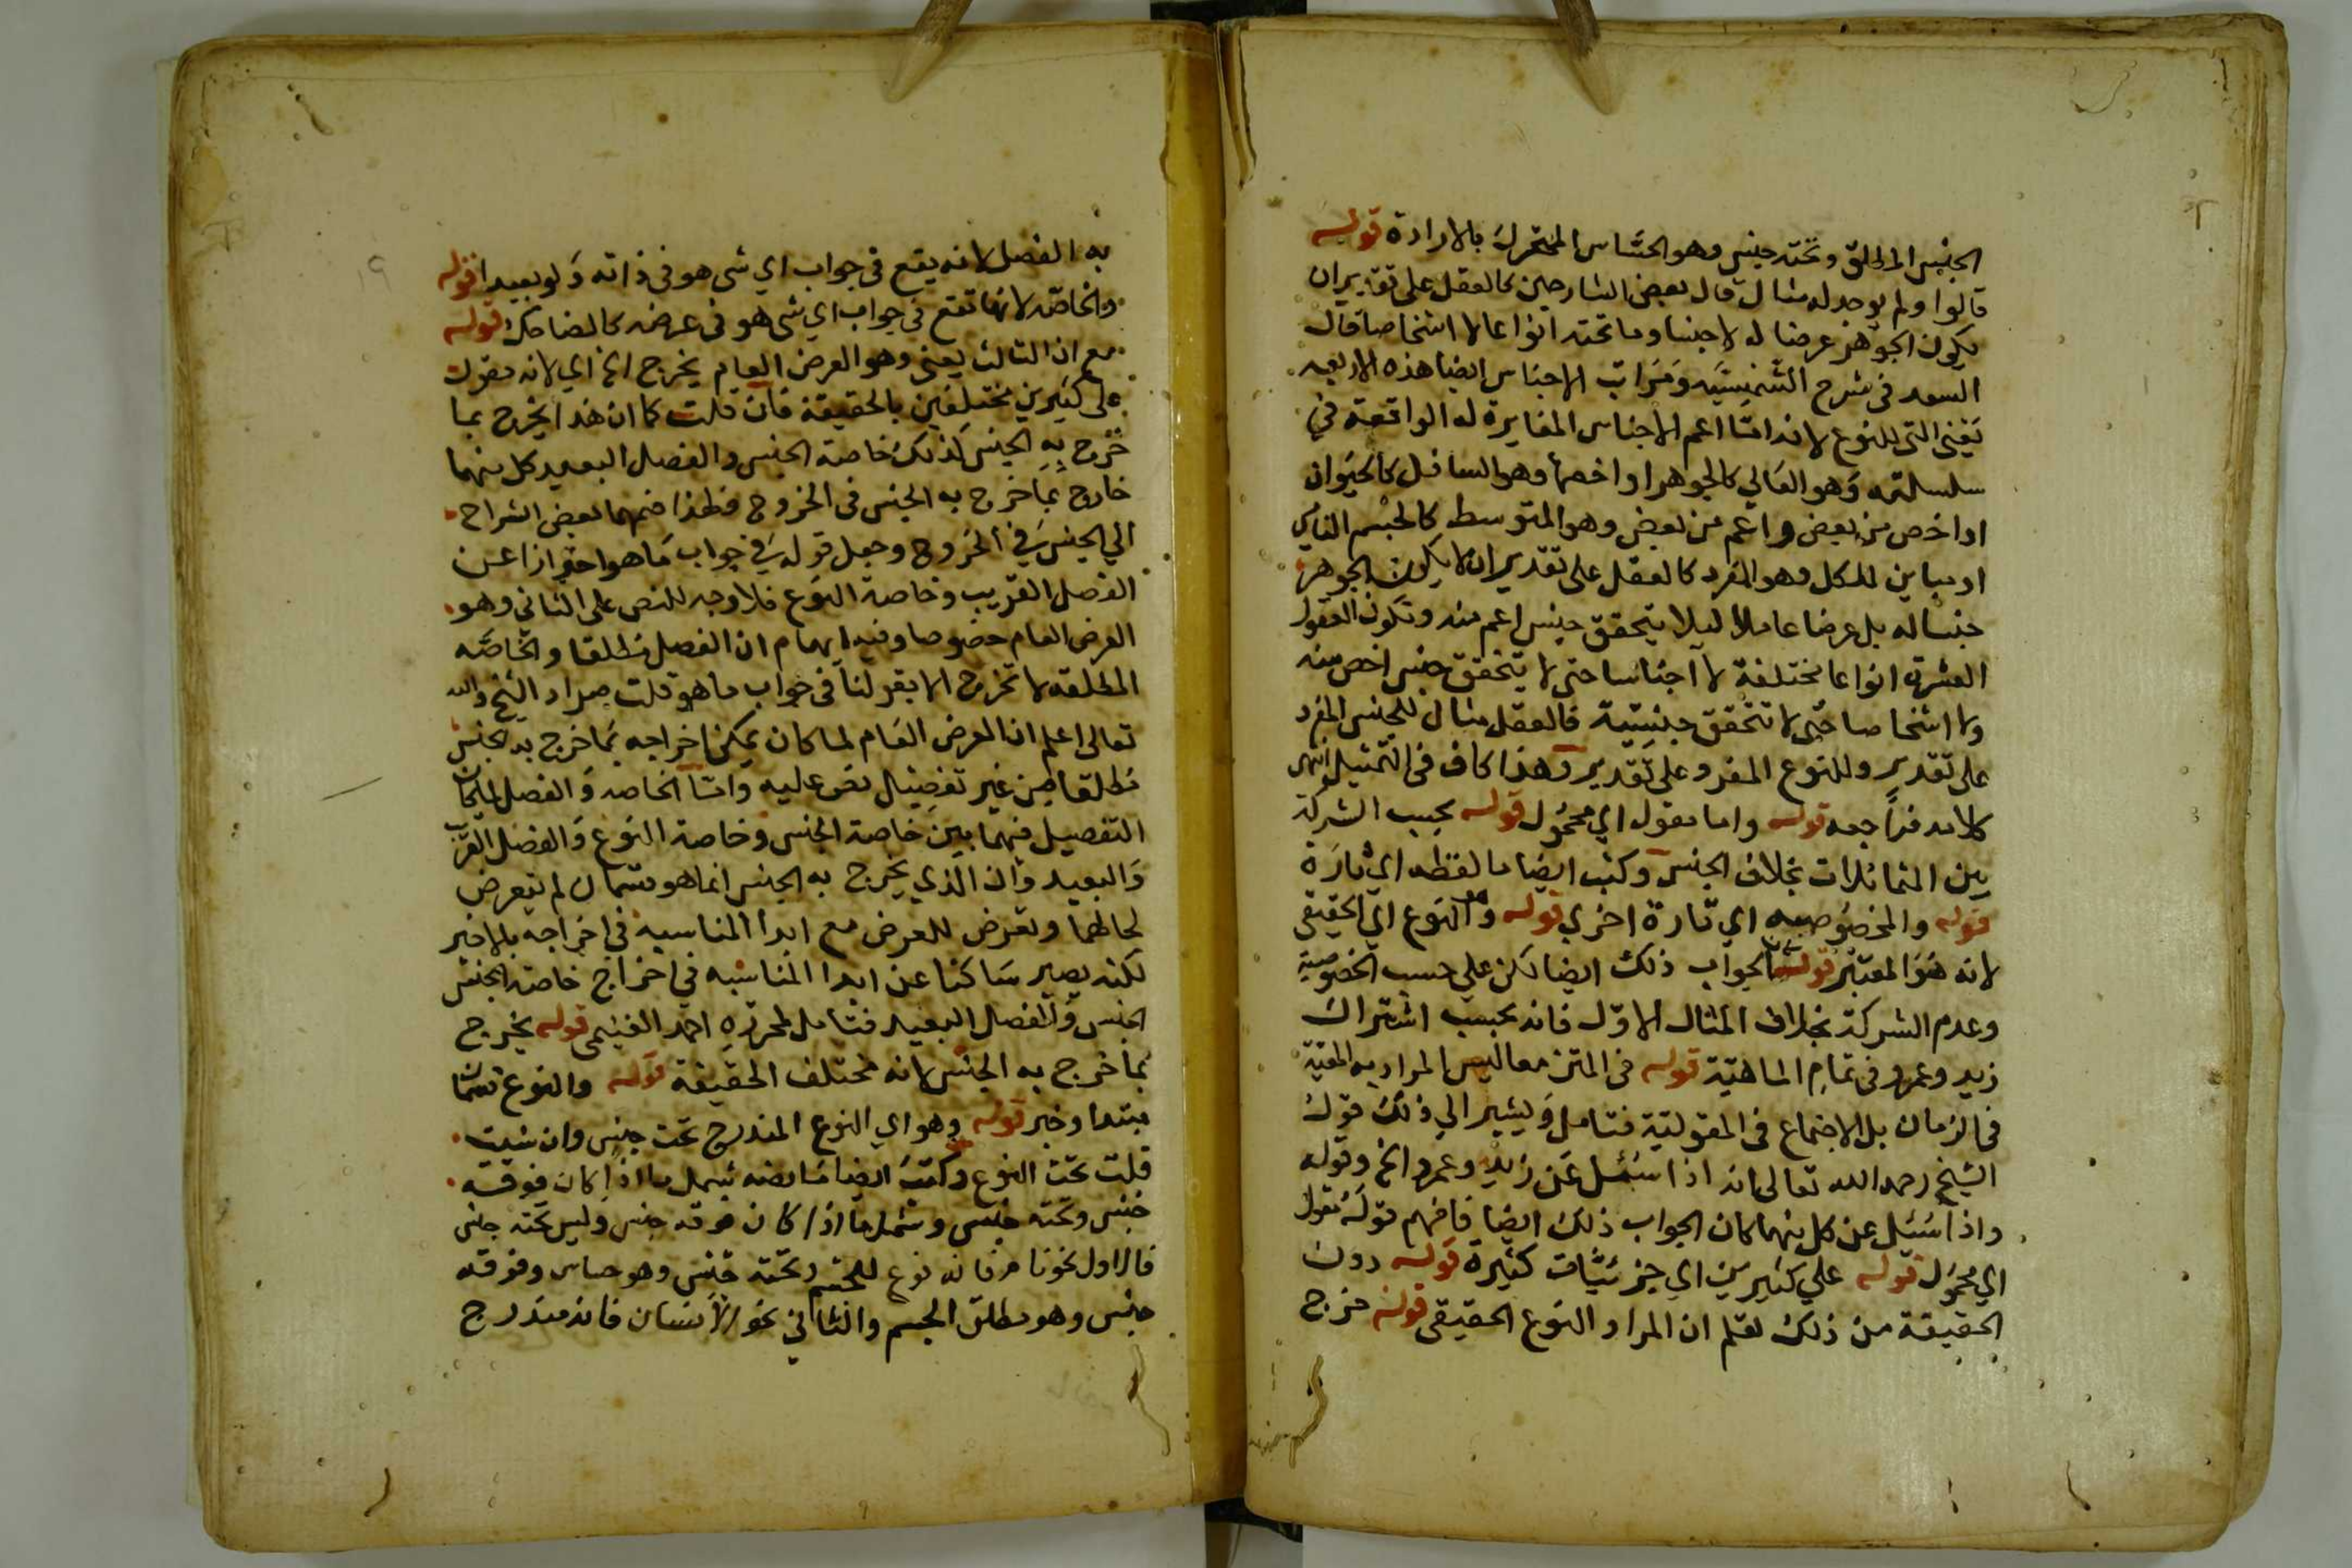 الجنس المطلق وتحته جنس وهو الحساس المتحرك بالارادة قوله
قالوا ولم يوجد له مثال قال بعض الشارحين كالعقل على تقدير ان
يكون الجوهر عرضا له لا جنسا وما تحته انواعا لا اشخاصا قال
السعد في شرح الشمسية ومراتب الاجناس ايضا هذه الاربعه
يعني التي للنوع لانه امّا اعم الاجناس المغايرة له الواقعة في
سلسلته وهو العالي كالجوهر او اخصها وهو السافل كالحيوان
او اخص من بعض واعم من بعض وهو المتوسط كالجسم النامي
او مباين للكل وهو المفرد كالعقل على تقدير ان لا يكون الجوهر
جنسا له بل عرضا عاما ليلا يتحقق جنس اعم منه وتكون العقول
العشرة انواعا مختلفة لا اجناسا حتى لا يتحقق جنس اخص منه
ولا اشخاصا حتى لا تتحقق جنسيته فالعقل مثال للجنس المفرد
على تقدير وللنوع المفرد على تقدير وهذا كاف في التمثيل انتهى
كلامه فراجعه قوله واما مقول اي محمول قوله بحسب الشركة
بين المتماثلات بخلاف الجنس وكتب ايضا ما لفظه اي تارة
قوله والخصوصيه اي تارة اخري قوله وهو النوع اي الحقيقي
لانه هو المعتبر قوله كان الجواب ذلك ايضا لكن علي حسب الخصوصية
وعدم الشركة بخلاف المثال الاوّل فانه بحسب اشتراك
زيد وعمرو في تمام الماهيّة قوله في المتن معا ليس المراد به المعيّة
في الزمان بل الاجتماع في المقولية فتامل ويشير الي ذلك قول
الشيخ رحمه الله تعالى انه اذا سُئل عن زيد وعمرو الخ وقوله
واذا سُئل عن كل منهما كان الجواب ذلك ايضا فافهم قوله مقول
اي محمول قوله علي كثيرين اي جزئيّات كثيرة قوله دون
الحقيقة من ذلك تعلم ان المراد النوع الحقيقي قوله خرج
به الفصل لانه يقع في جواب اي شي هو في ذاته ولو بعيدا قوله
والخاصّه لانها تقع في جواب اي شي هو في عرضه كالضاحك قوله
مع ان الثالث يعني وهو العرض العام يخرج الخ اي لانه مقول
على كثيرين مختلفين بالحقيقة فان قلت كما ان هذا يخرج بما
خرج به الجنس كذلك خاصة الجنس والفصل البعيد كل منهما
خارج بما خرج به الجنس في الخروج فلهذا ضمهما بعض الشراح
الي الجنس في الخروج وجعل قوله في جواب ما هو احترازا عن
الفصل القريب وخاصة النوع فلا وجه للنص على الثاني وهو
العرض العام خصوصا وفيه ايهام ان الفصل مطلقا والخاصّه
المطلقه لا تخرج الا بقولنا في جواب ما هو قلت مراد الشيخ والله
تعالى اعلم ان العرض العام لما كان يمكن اخراجه بما خرج به الجنس
مطلقا من غير تفصيل نص عليه وامّا الخاصه والفصل لما كان
التفصيل فيهما بين خاصة الجنس وخاصة النوع والفصل القريب
والبعيد وان الذي يخرج به الجنس انما هو قسمان لم يتعرض
لحالهما وتعرض للعرض مع ابدا المناسبه في اخراجه بالاخير
لكنه يصير ساكتا عن ابدا المناسبه في اخراج خاصة الجنس
الجنس والفصل البعيد فتامل لمحرره احمد الغنيمي قوله يخرج
بما خرج به الجنس لانه مختلف الحقيقة قوله والنوع قسمان
مبتدا وخبر قوله وهو اي النوع المندرج تحت جنس وان شيت
قلت تحت النوع وكتب ايضا ما نصه يشمل ما اذا كان فوقه
جنس وتحته جنس وشمل ما اذا كان فوقه جنس وليس تحته جنس
فالاول نحو نام فانه نوع للجسم وتحته جنس وهو حساس وفوقه
جنس وهو مطلق الجسم والثاني نحو الانسان فانه مندرج